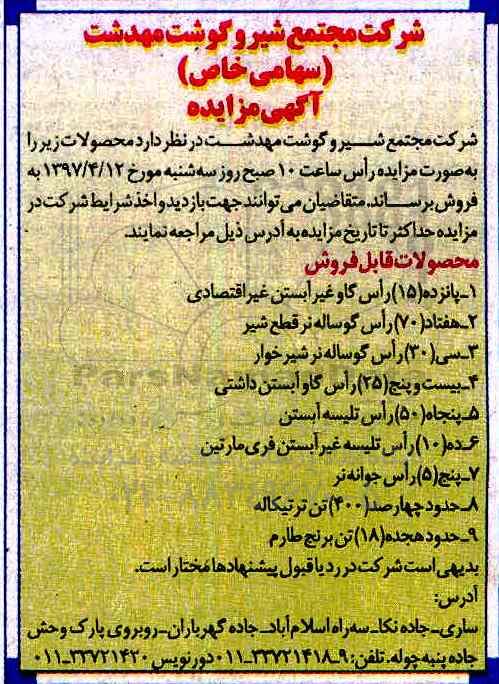 شرکت مجتمع شیر و گوشت مهدشت
(سهامی خاص)
آگهی مزایده
شرکت مجتمع شیر و گوشت مهدشت در نظر دارد محصولات زیر را
به صورت مزایده رأس ساعت ۱۰ صبح روز سه شنبه مورخ ۱۳۹۷/۴/۱۲ به
فروش برساند. متقاضیان می‌توانند جهت بازدید و اخذ شرایط شرکت در
مزایده حداکثر تا تاریخ مزایده به آدرس ذیل مراجعه نمایند.
محصولات قابل فروش
۱ـ پانزده (۱۵) رأس گاو غیر آبستن غیر اقتصادی
۲ـ هفتاد (۷۰) رأس گوساله نر قطع شیر
۳ـ سی (۳۰) رأس گوساله نر شیر خوار
۴ـ بیست و پنج (۲۵) رأس گاو آبستن داشتی
۵ـ پنجاه (۵۰) رأس تلیسه آبستن
۶ـ ده (۱۰) رأس تلیسه غیر آبستن فری مارتین
۷ـ پنج (۵) رأس جوانه نر
۸ـ حدود چهارصد (۴۰۰) تن تر تیکاله
۹ـ حدود هجده (۱۸) تن برنج طارم
بدیهی است شرکت در رد یا قبول پیشنهادها مختار است.
آدرس:
ساری ـ جاده نکا ـ سه راه اسلام آباد ـ جاده گهرباران ـ روبروی پارک وحش
جاده پنبه چوله. تلفن: ۹ـ۳۳۷۲۱۴۱۸ـ۰۱۱ دورنویس ۳۳۷۲۱۴۲۰ـ۰۱۱